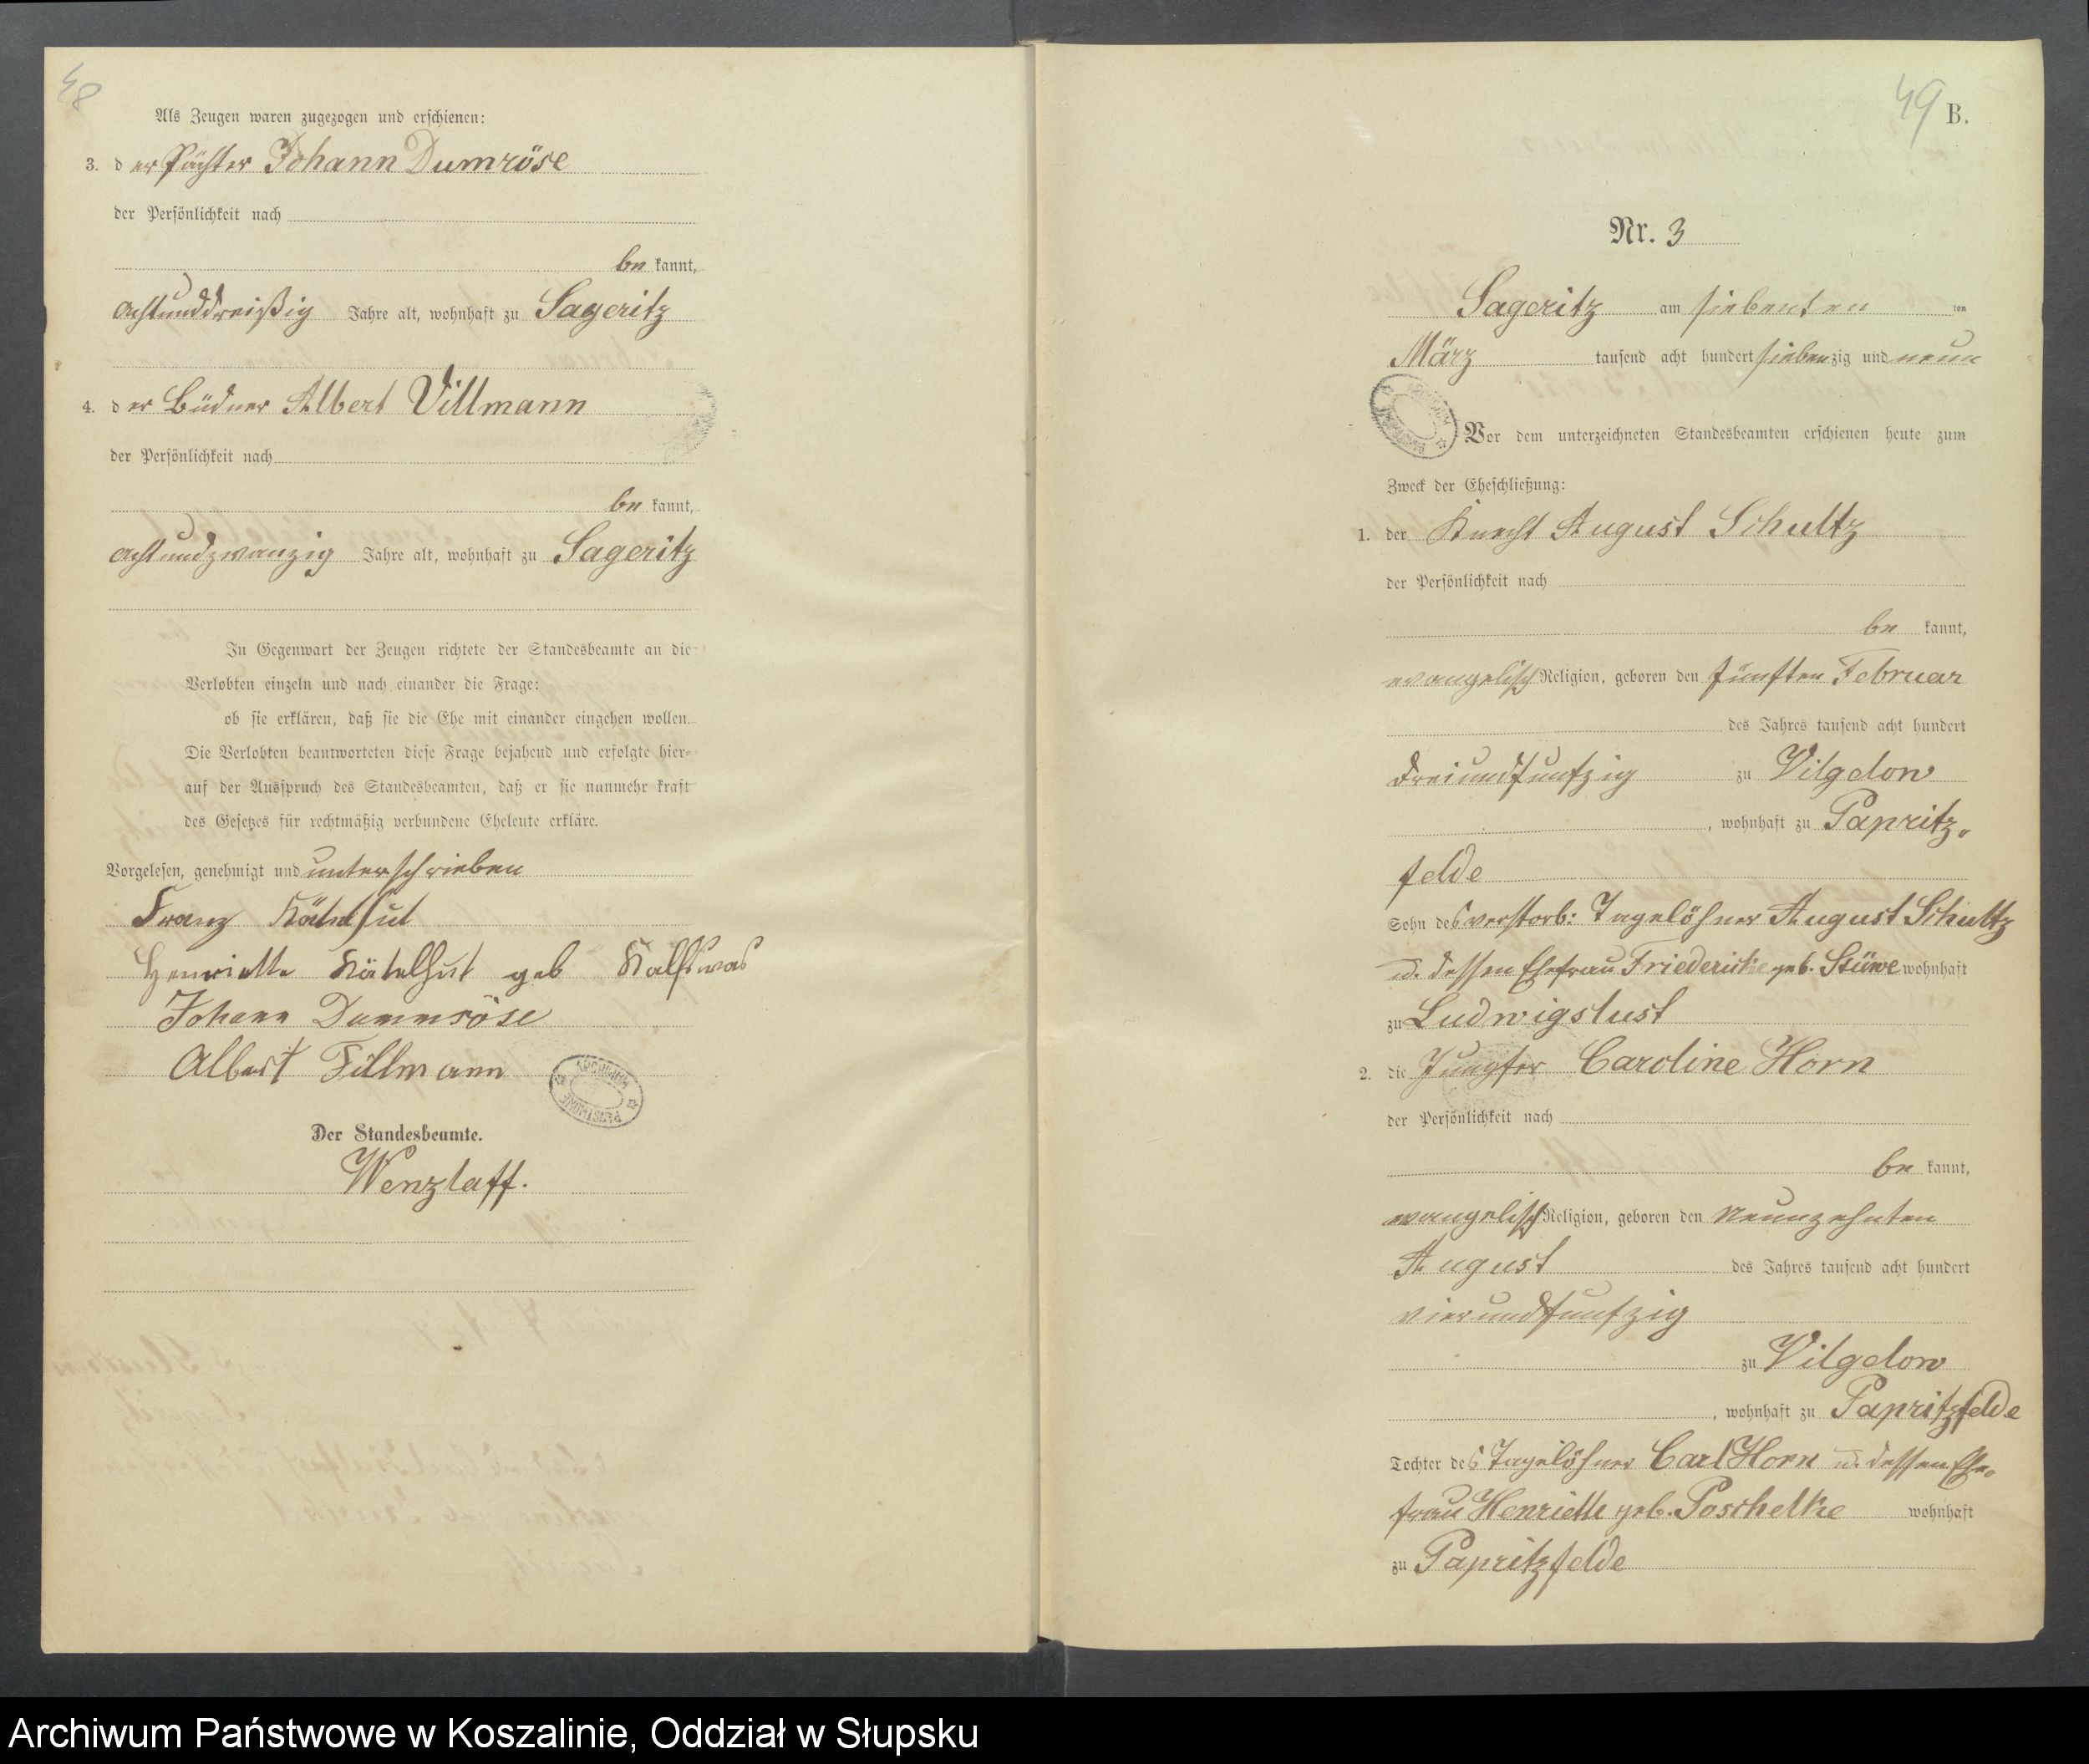 48
Als Zeugen waren zugezogen und erschienen:
3. der Pächter Johann Dumröse
der Persönlichkeit nach
be kannt,
achtunddreißig Jahre alt, wohnhaft zu Sageritz
4. der Büdner Albert Villmann
der Persönlichkeit nach
be kannt,
achtundzwanzig Jahre alt, wohnhaft zu Sageritz
In Gegenwart der Zeugen richtete der Standesbeamte an die
Verlobten einzeln und nach einander die Frage:
ob sie erklären, daß sie die Ehe mit einander eingehen wollen.
Die Verlobten beantworteten diese Frage bejahend und erfolgte hier-
auf der Ausspruch des Standesbeamten, daß er sie nunmehr kraft
des Gesetzes für rechtmäßig verbundene Eheleute erkläre.
Vorgelesen, genehmigt und unterschrieben
Franz
Henriette Kätelhut geb
Johann Dummröse
Albert Fillmann
ARCHIWUM PAŃSTWOWE
Der Standesbeamte.
Wenzlaff.
49 B.
Nr. 3
Sageritz am siebenten ten
März tausend acht hundert siebenzig und neun
Vor dem unterzeichneten Standesbeamten erschienen heute zum
Zweck der Eheschließung:
1. der Knecht August Schultz
der Persönlichkeit nach
be kannt,
evangelisch Religion, geboren den fünften Februar
des Jahres tausend acht hundert
dreiundfunfzig zu Vilgelow
, wohnhaft zu Papritz-
felde
Sohn des verstorb: Tagelöhner August Schultz
u. dessen Ehefrau Friedericke geb. Stüwe wohnhaft
zu Ludwigslust
2. die Jungfer Caroline Horn
der Persönlichkeit nach
be kannt,
evangelisch Religion, geboren den neunzehnten
August des Jahres tausend acht hundert
vierundfunfzig
zu Vilgelow
, wohnhaft zu Papritzfelde
Tochter des Tagelöhner Carl Horn u. dessen Ehe-
frau Henriette geb. Poschelke wohnhaft
zu Papritzfelde
Archiwum Państwowe w Koszalinie, Oddział w Słupsku